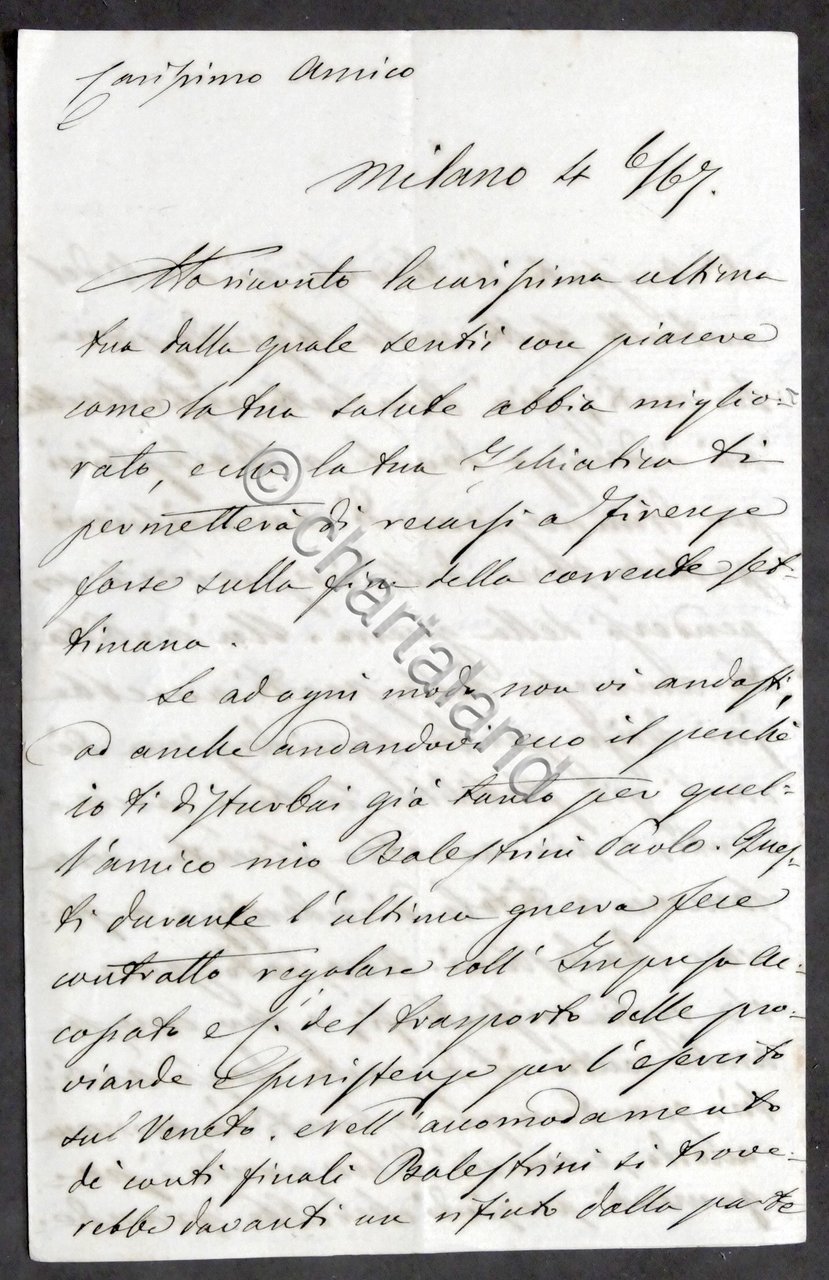 Carissimo Amico
Milano 4 6/67.
Ho ricevuto la carissima ultima
tua dalla quale sentii con piacere
come la tua salute abbia miglio-
rato, e che la tua Ischiatica ti
permetterà di recarsi a Firenze
forse sulla fine della corrente set-
timana.
Se ad ogni modo non vi andassi,
od anche andandovi ecco il perchè
io ti disturbai già tanto per quel-
l'amico mio Balestrini Paolo. Ques-
ti durante l'ultima guerra fece
contratto regolare coll' Impresa Ac-
cossato e C. del trasporto delle pro-
viande Sussistenze per l'esercito
sul Veneto. Nell'accomodamento
di conti finali Balestrini si trove-
rebbe davanti un rifiuto dalla parte
© chartaland